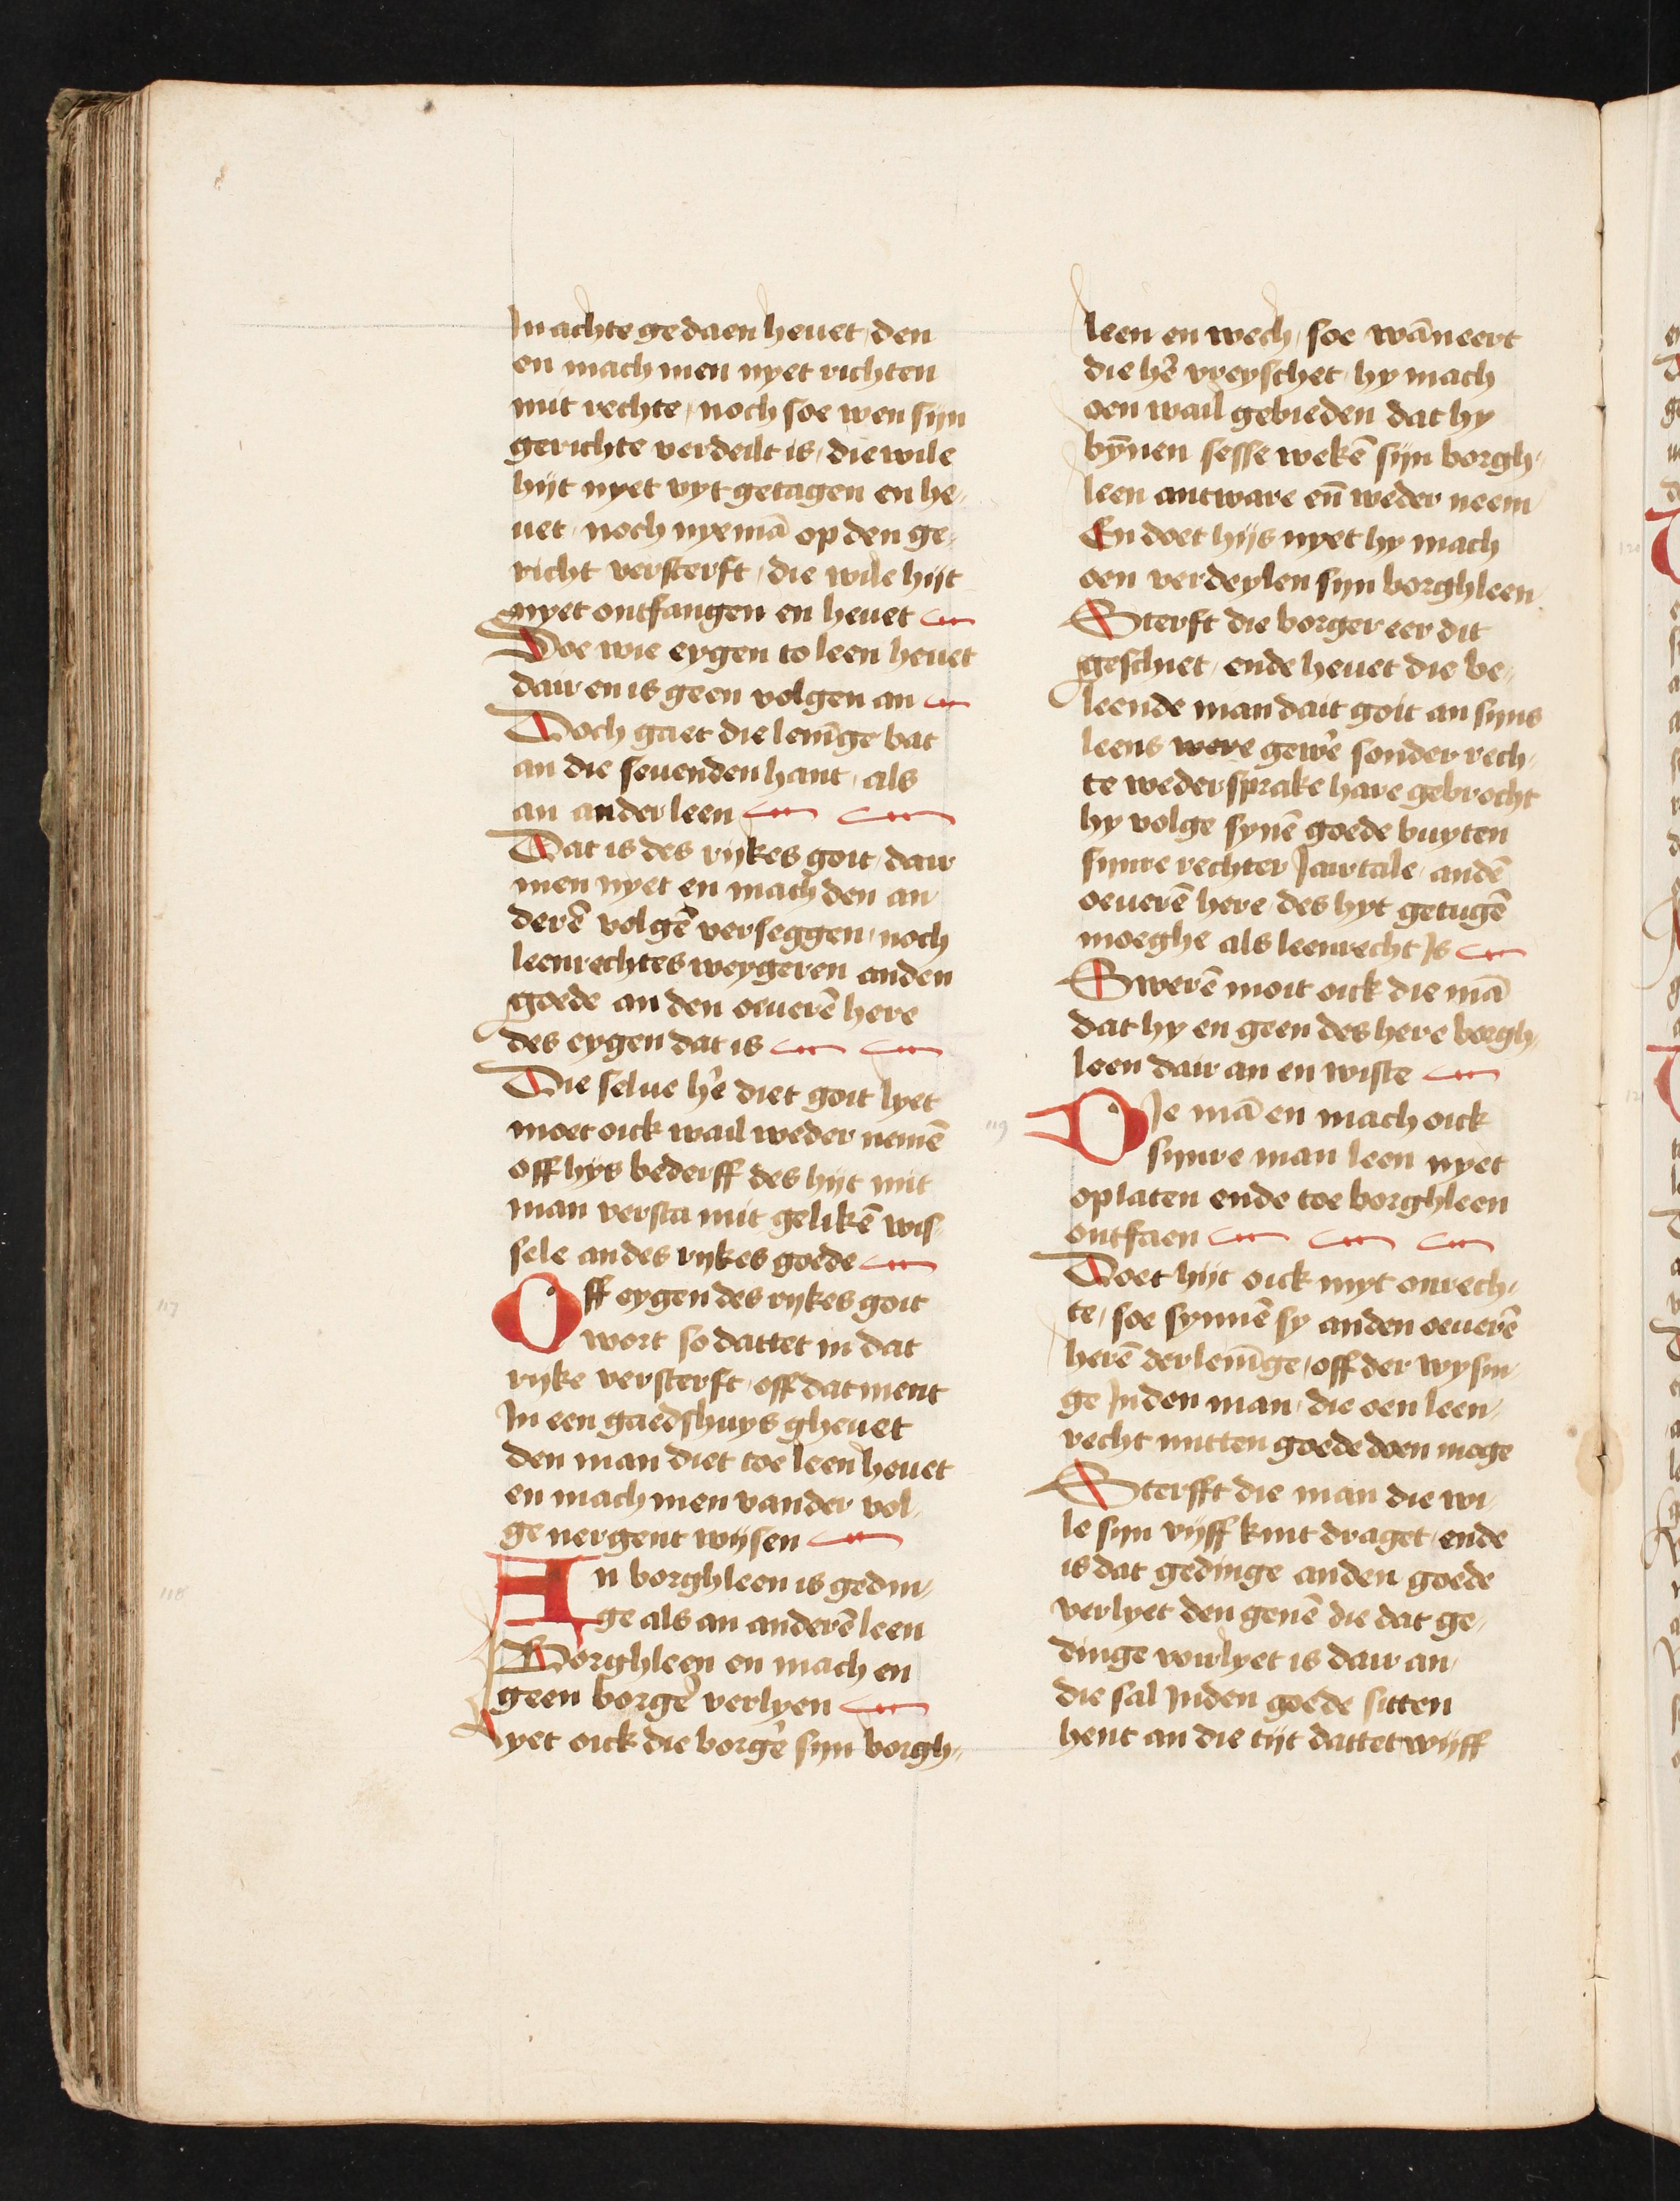 In achte gedaen heuet, den
en mach men nyet richten
mit rechte, noch soe wen sijn
gerichte verdeilt is, die wile
hijt nyet vyt getagen en he„
uet, noch nyemā op den ge„
richt versterft, die wile hijt
nyet ontfangen en heuet
Soe wie eygen to leen heuet
dair en is geen volgen an
Doch gaet die lenīge bat
an die seuenden hant, als
an ander leen
Dat is des rijkes goit, dair
men nyet en mach den an
derē volgē verseggen, noch
leenrechtes weygeren anden
goede an den oeuerē here
des eygen dat is
Die selue hē diet goit lyet
moet oick wail weder nemē
off hijs bederff des hijt mit
man versta mit gelikē wis
sele an des rijkes goede
117
Off eygen des rijkes goit
wort so dattet in dat
rijke versterft, off dat ment
In een gaedshuys gheuet
den man diet toe leen heuet
en mach men vander vol„
ge nergent wijsen
118
An borghleen is gedin„
ge als an anderē leen
Borghleen en mach en
geen borgē verlyen
Lyet oick die borgē sijn borgh„
leen en wech, soe wāneert
die hē vreyschet, hy mach
oen wail gebieden dat hy
bȳnen sesse wekē sijn borgh„
leen antware en̄ weder neem
En doet hijs nyet hy mach
oen verdeylen sijn borghleen
Sterft die borger eer dit
geschiet, ende heuet die be„
leende man dait goit an sijns
leens were gewē sonder rech„
te wedersprake hare gebrocht
hy volge synē goede buyten
sijnre rechter Jairtale, andē
oeuerē here, des hyt getugē
moeghe als leenrecht Is
Swerē moit oick die mā
dat hy en geen des here borgh„
leen dair an en wiste
119
Die mā en mach oick
sijnre man leen nyet
oplaten ende toe borghleen
ontfaen
Doet hijt oick myt onrech„
te, soe synnē sy anden oeuerē
herē der lenīge, off der wysin„
ge Inden man, die oen leen„
recht mitten goede doen moge
Sterfft die man die wi„
le sijn vijff kint draget, ende
is dat gedinge anden goede
verlyet den genē die dat ge„
dinge wirlyet is dair an,
die sal Inden goede sitten
hent an die tijt dattet wijff